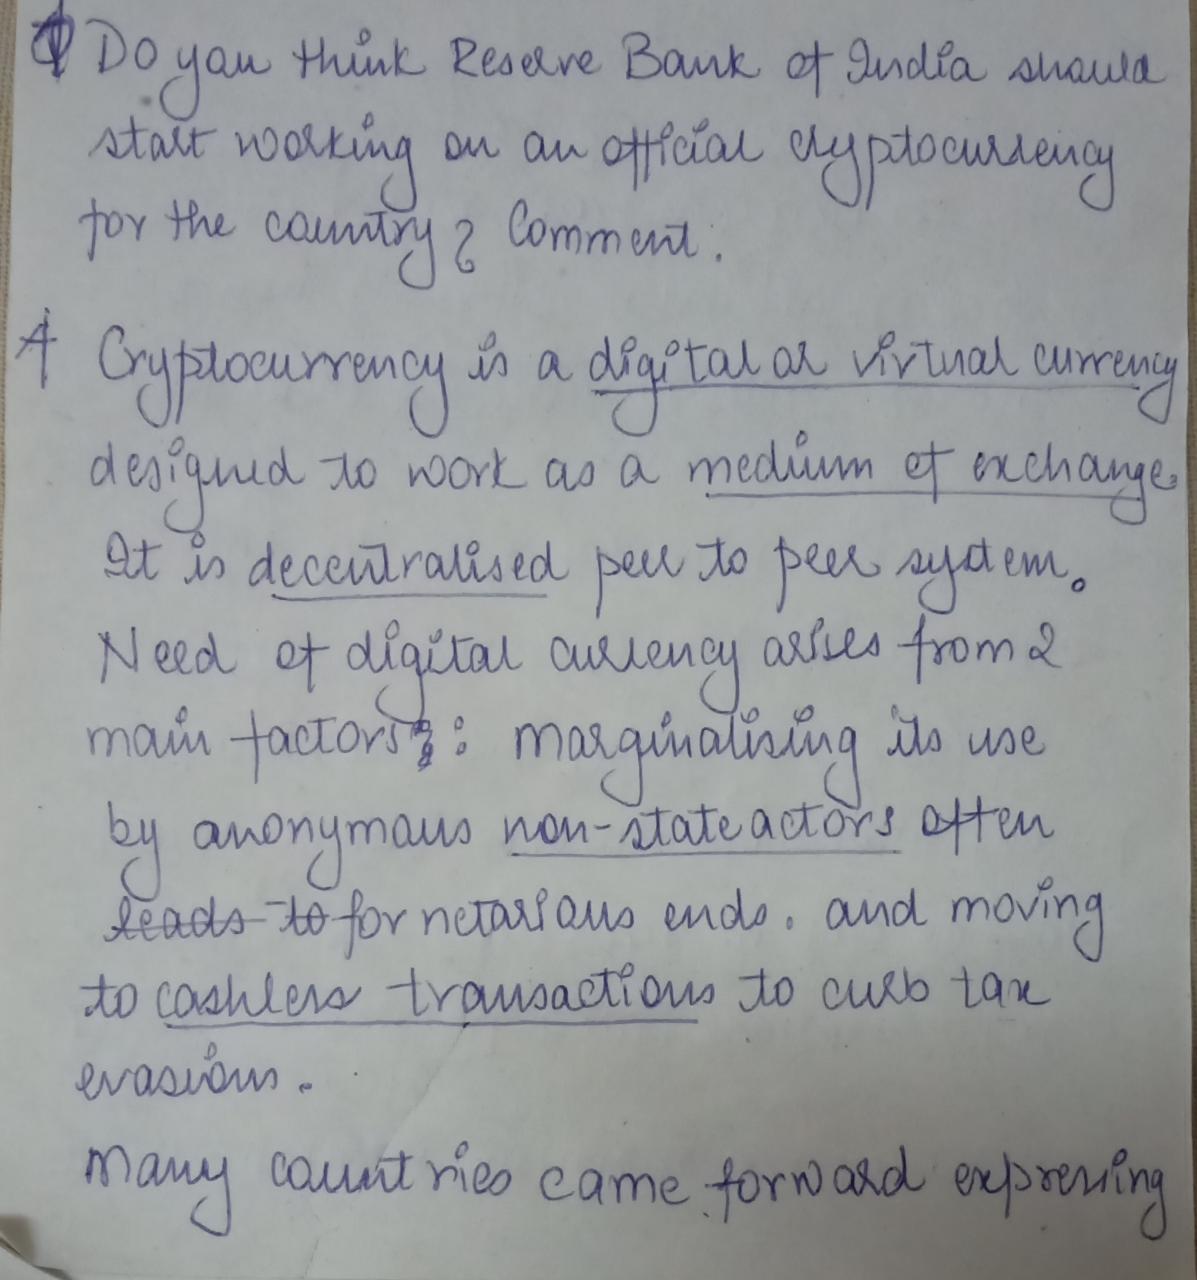 Q Do you think Reserve Bank of India should
start working on an official cryptocurrency
for the country? Comment.
A Cryptocurrency is a digital or virtual currency
designed to work as a medium of exchange.
It is decentralised peer to peer system.
Need of digital currency arises from 2
main factors: marginalising its use
by anonymous non-state actors often
leads to for nefarious ends. and moving
to cashless transactions to curb tax
evasion.
Many countries came forward expressing